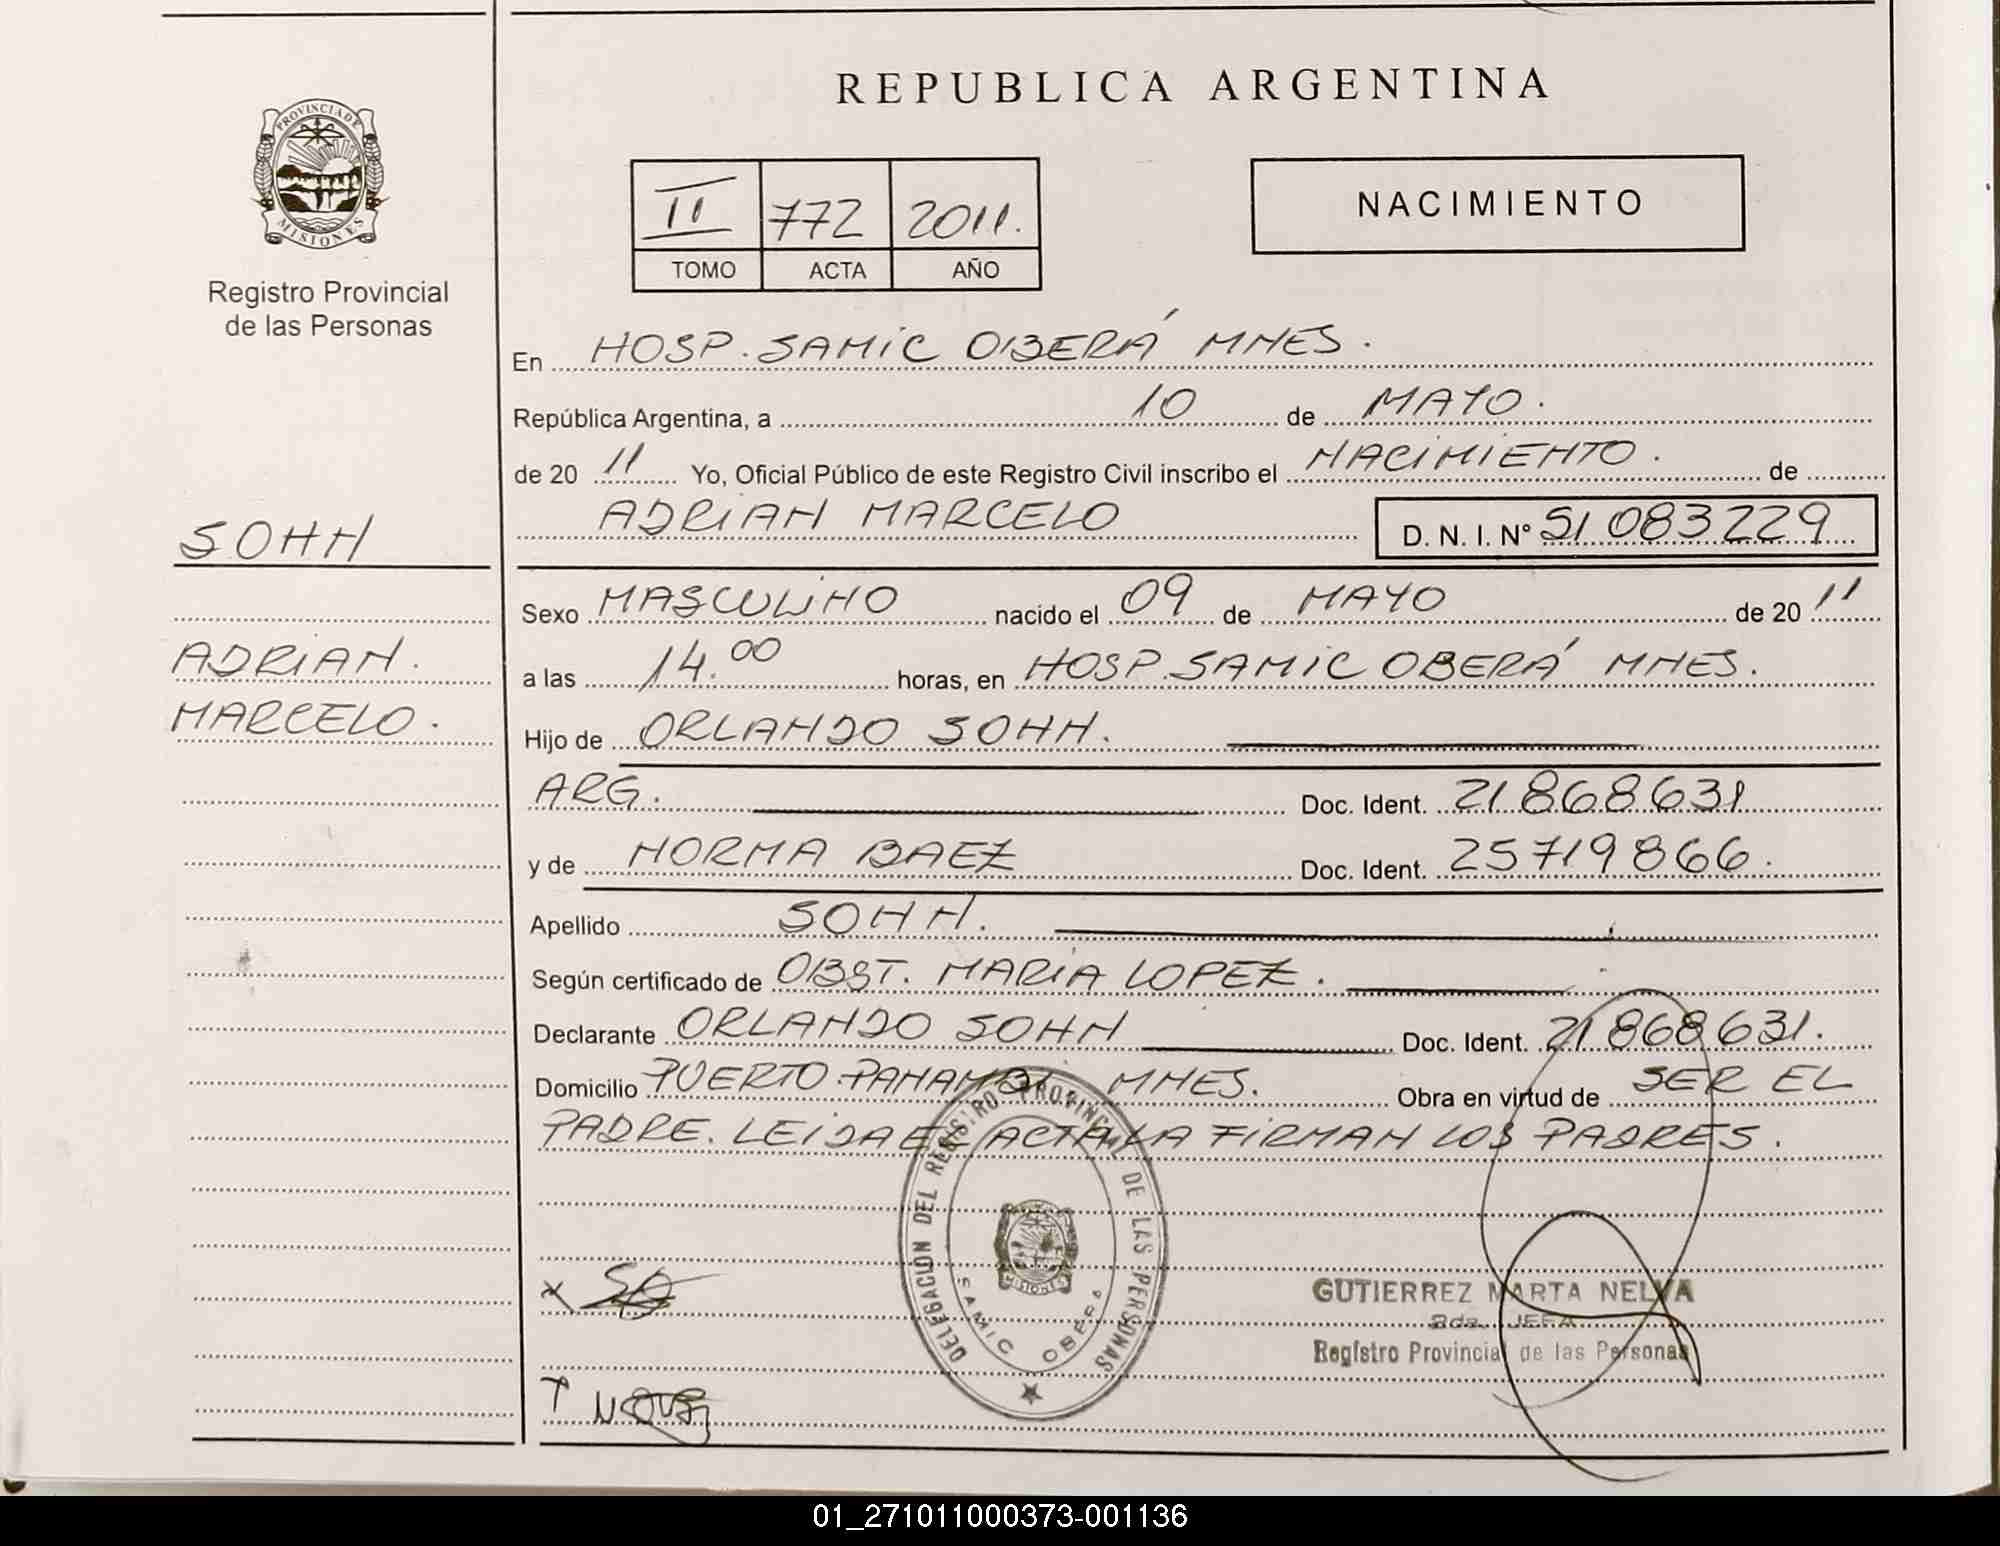 REPUBLICA ARGENTINA
PROVINCIA DE
MISIONES
Registro Provincial
de las Personas
II 772 2011.
TOMO ACTA AÑO
NACIMIENTO
En HOSP. SAMIC OBERÁ MNES.
República Argentina, a 10 de MAYO.
de 20 11 Yo, Oficial Público de este Registro Civil inscribo el NACIMIENTO. de
ADRIAN MARCELO D. N. I. N° 51 083229
SOHN
ADRIAN.
MARCELO.
Sexo MASCULINO nacido el 09 de MAYO de 20 11
a las 14.00 horas, en HOSP. SAMIC OBERÁ MNES.
Hijo de ORLANDO SOHN.
ARG. Doc. Ident. 21868631
y de NORMA BAEZ Doc. Ident. 25719866.
Apellido SOHN.
Según certificado de OBST. MARIA LOPEZ.
Declarante ORLANDO SOHN Doc. Ident. 21868631.
Domicilio PUERTO PANAMBI MNES. Obra en virtud de SER EL
PADRE. LEIDA EL ACTA LA FIRMAN LOS PADRES.
DELEGACION DEL REGISTRO PROVINCIAL DE LAS PERSONAS
SAMIC OBERA
MISIONES
GUTIERREZ MARTA NELVA
2da. JEFA
Registro Provincial de las Personas
01_271011000373-001136